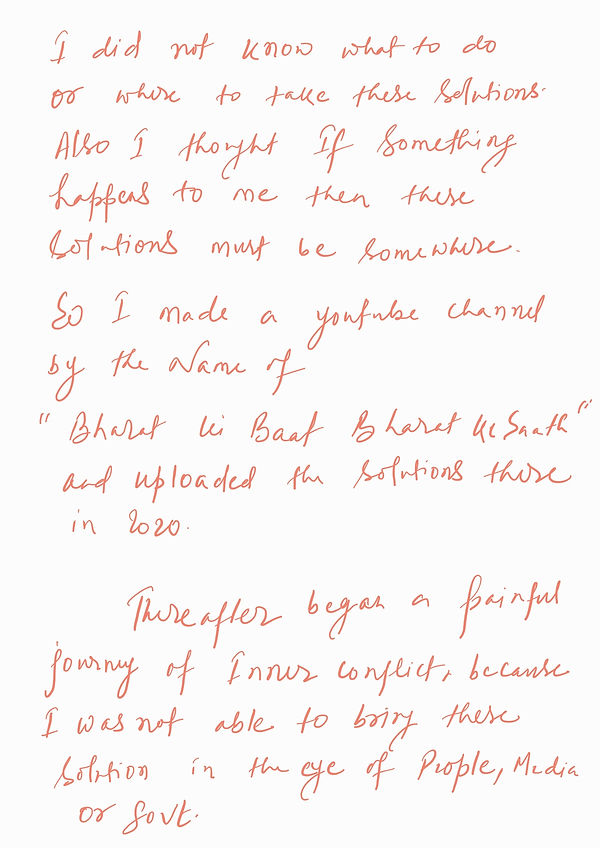 I did not know what to do
or where to take these solutions.
Also I thought If something
happens to me then these
solutions must be somewhere.
So I made a youtube channel
by the Name of
"Bharat ki Baat Bharat ke Saath"
and uploaded the solutions there
in 2020.
Thereafter began a painful
journey of Inner conflict, because
I was not able to bring these
solution in the eye of People, Media
or Govt.